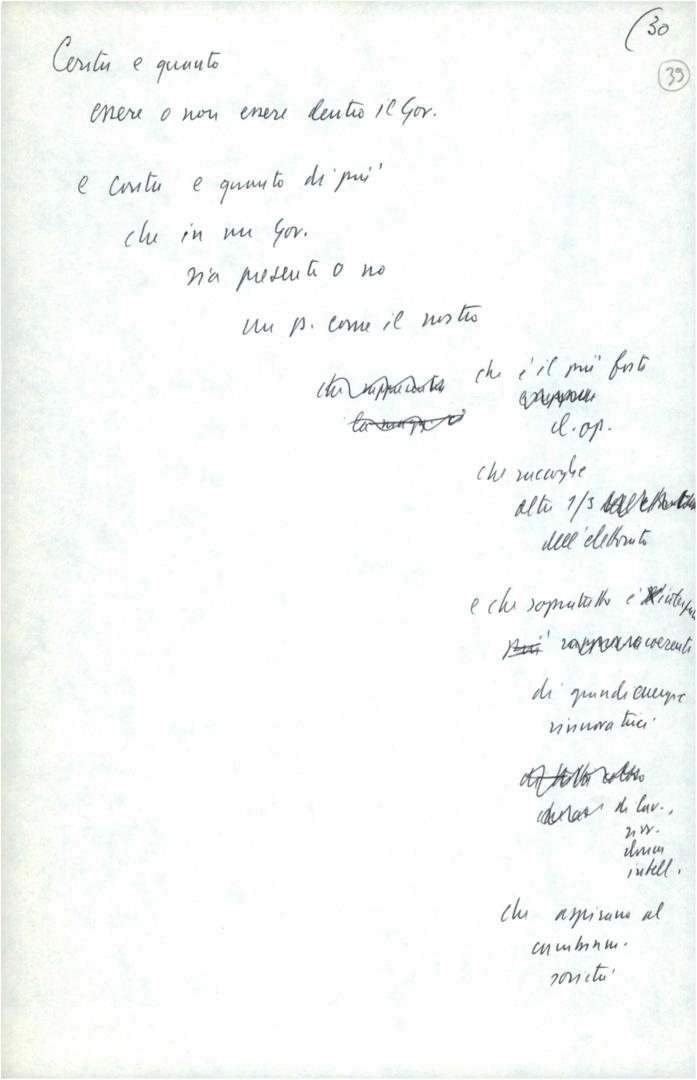 (30
39
Conta e quanto
essere o non essere dentro il Gov.
e conta e quanto di più
che in un Gov.
sia presente o no
un p. come il nostro
che rappresenta
che è il più forte
d. op.
che raccoglie
oltre 1/3 dell'elettorato
dell'elettorato
e che soprattutto è
più coerente
di grandi energie
rinnovatrici
di lav.,
giov.
donne
intell.
che aspirano al
cambiam.
società